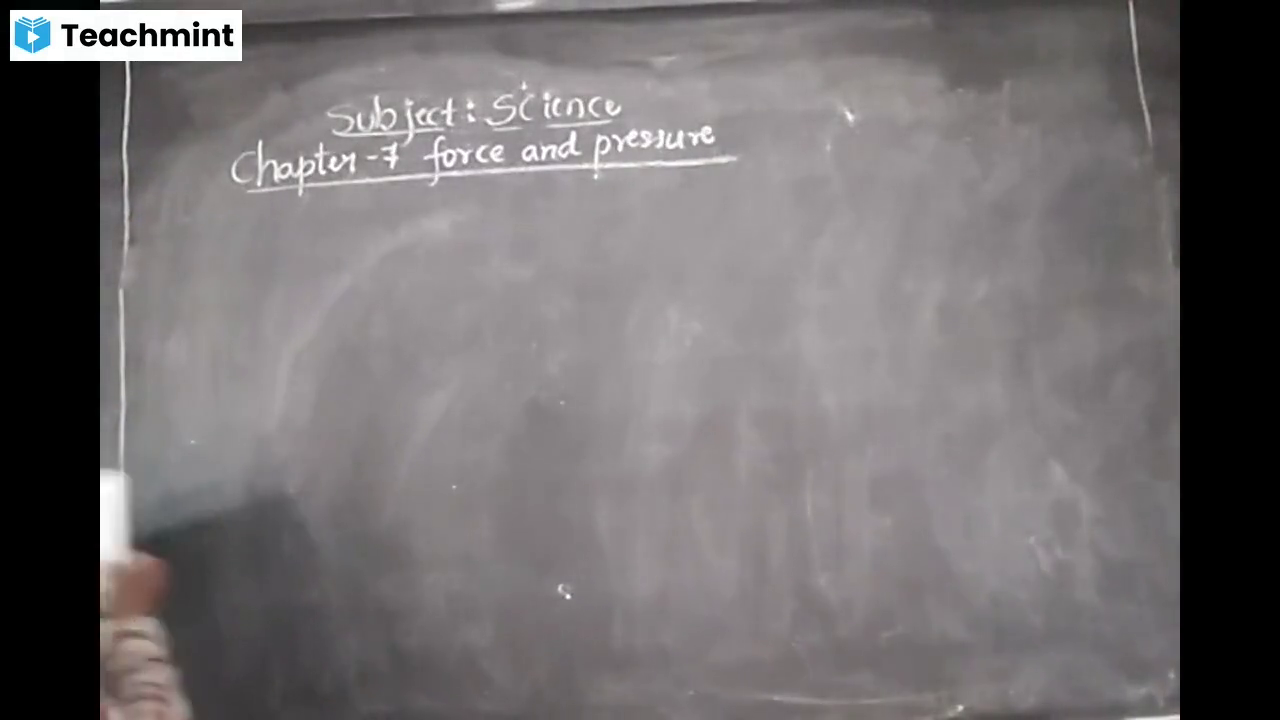 Teachmint
Subject: Science
Chapter-7 force and pressure